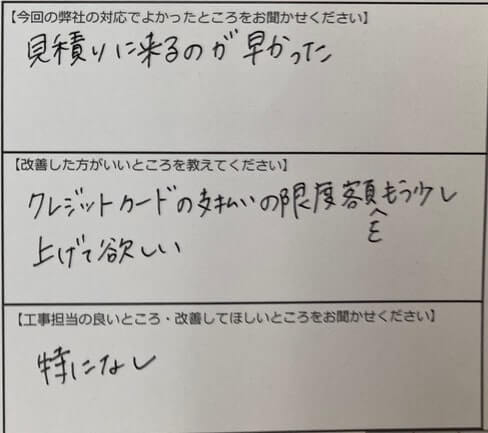 【今回の弊社の対応でよかったところをお聞かせください】
見積りに来るのが早かった
【改善した方がいいところを教えてください】
クレジットカードの支払いの限度額をもう少し
上げて欲しい
【工事担当の良いところ・改善してほしいところをお聞かせください】
特になし